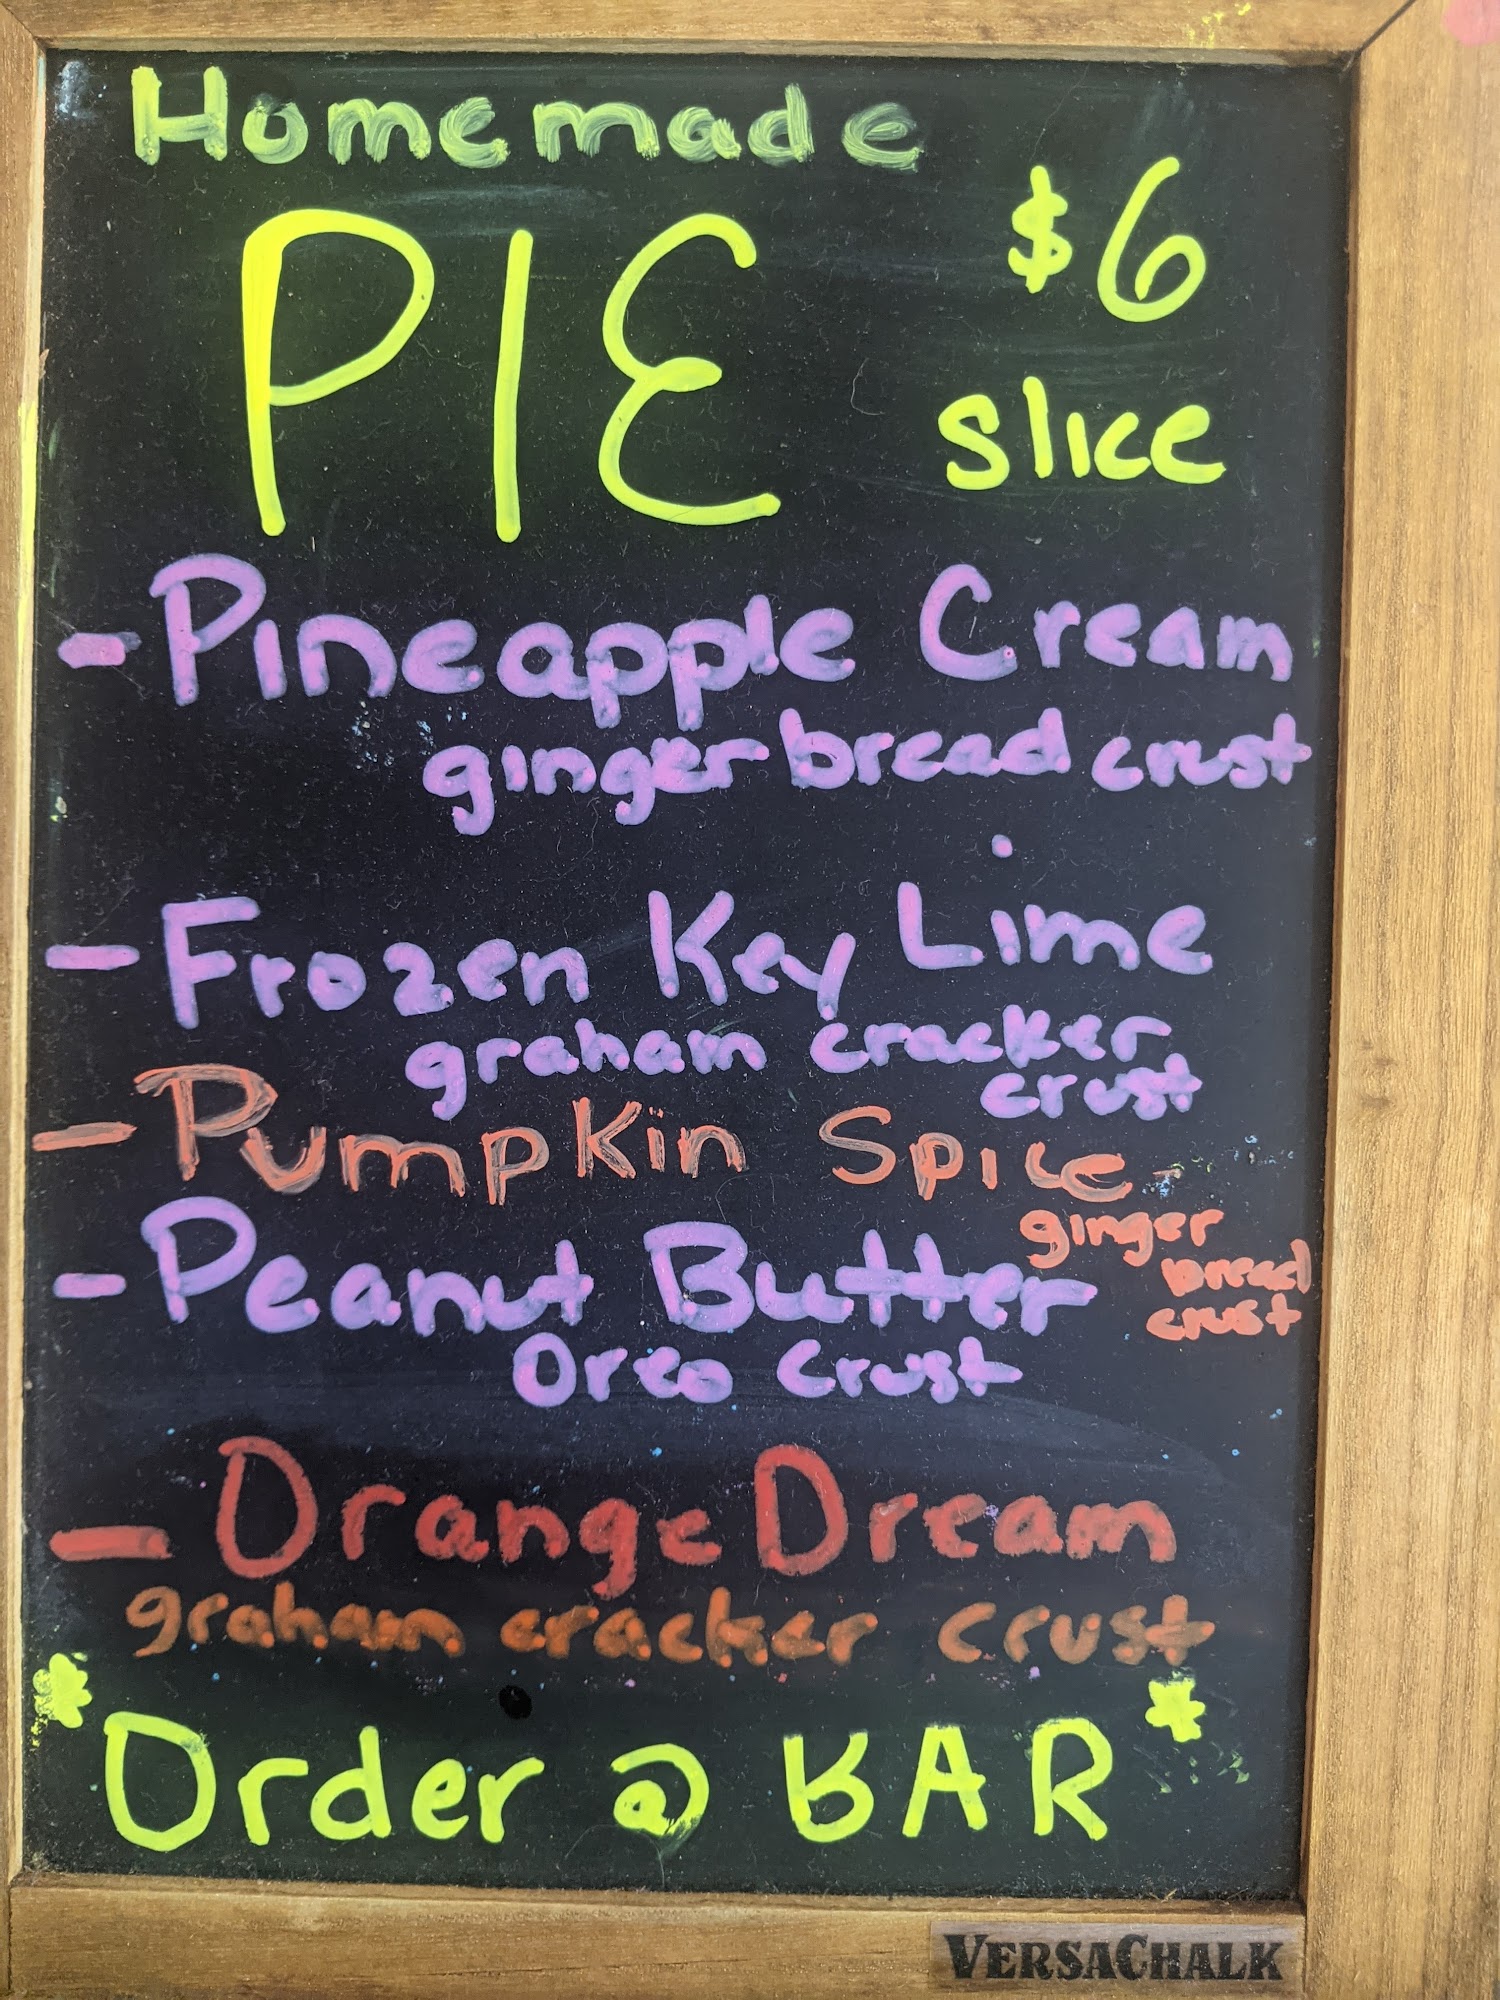 Homemade
PIE $6
slice
- Pineapple Cream
gingerbread crust
- Frozen Key Lime
graham cracker
crust
- Pumpkin Spice
ginger
bread
crust
- Peanut Butter
Oreo Crust
- Orange Dream
graham cracker crust
*Order @ BAR*
VERSACHALK